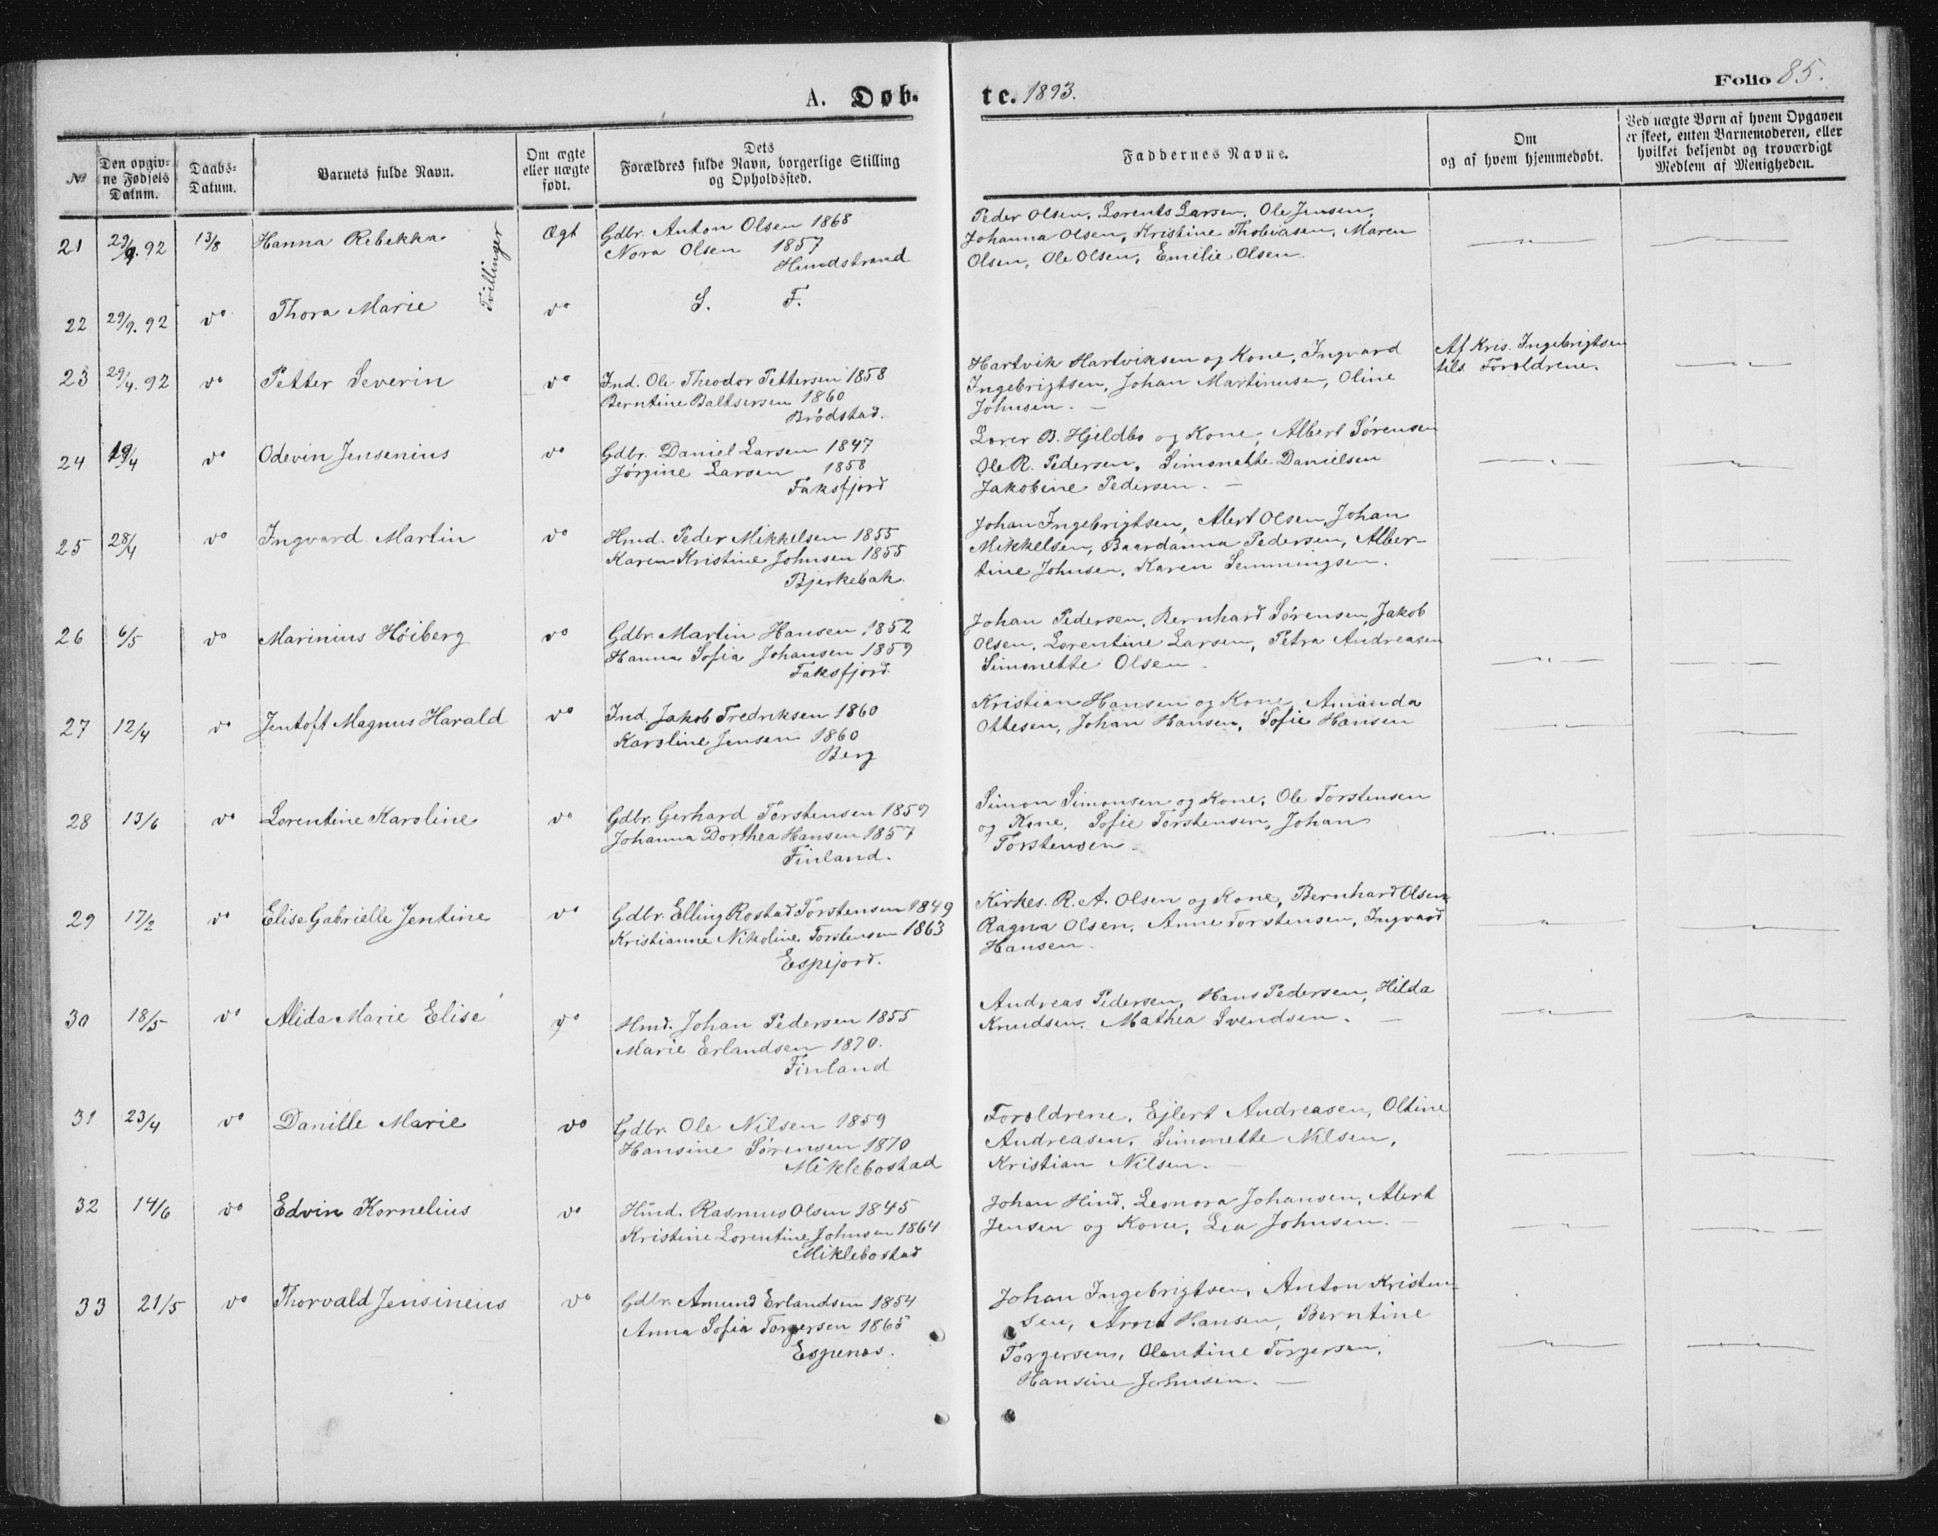 A. Døbte. 1893.
Folio 85.
№
Den opgivne Fødsels Datum.
Daabs-Datum.
Barnets fulde Navn.
Om ægte eller uægte født.
Dets Forældres fulde Navn, borgerlige Stilling og Opholdssted.
Faddernes Navne.
Om og af hvem hjemmedøbt.
Ved uægte Børn af hvem Opgaven er skeet, enten Barnemoderen, eller hvilket bekjendt og troværdigt Medlem af Menigheden.
21 29/9. 92 13/8 Hanna Rebekka Tvillinger Ægt
Gdbr. Anton Olsen 1868
Nora Olsen 1857
Hundstrand
Peder Olsen, Lorents Larsen, Ole Jensen,
Johanna Olsen, Kristine Thobiasen, Maren
Olsen, Ole Olsen, Emilie Olsen.
22 29/9. 92 do Thora Marie do
S. F.
23 29/4. 92 do Petter Severin do
Ind. Ole Theodor Pettersen 1858
Berntine Baltsersen 1860
Brødstad.
Hartvik Hartviksen og Kone, Ingvard
Ingebrigtsen, Johan Martinusen, Oline
Johnsen. —
Af Kris. Ingebrigtsen
tils Foroldrene.
24 19/4 do Odevin Jensenius do
Gdbr. Daniel Larsen 1847
Jørgine Larsen 1858
Faksfjord
Lærer B. Hjeldbo og Kone, Albert Sørensen
Ole R. Pedersen, Simonette Danielsen
Jakobine Pedersen. —
25 28/4 do Ingvard Martin do
Hmd. Peder Mikkelsen 1855
Karen Kristine Johnsen 1855
Bjerkebak.
Johan Ingebrigtsen, Alert Olsen, Johan
Mikkelsen, Baardanna Pedersen, Alber-
tine Johnsen, Karen Semmingsen.
26 6/5 do Marinius Höiberg do
Gdbr. Martin Hansen 1852
Hanna Sofia Johansen 1859
Faksfjord.
Johan Pedersen, Bernhard Sørensen, Jakob
Olsen, Lorentine Larsen, Petra Andreasen
Simonette Olsen.
27 12/4 do Jentoft Magnus Harald do
Ind. Jakob Fredriksen 1860
Karoline Jensen 1860
Berg
Kristian Hansen og Kone, Amanda
Ottesen, Johan Hansen, Sofie Hansen
28 13/6 do Lorentine Karoline do
Gdbr. Gerhard Torstensen 1859
Johanna Dorthea Hansen 1857
Finland.
Simon Simonsen og Kone, Ole Torstensen
og Kone, Sofie Torstensen, Johan
Torstensen.
29 17/2 do Elise Gabrielle Jentine do
Gdbr. Elling Rostad Torstensen 1849
Kristianne Nikoline Torstensen 1863
Espejord.
Kirkes. R. A. Olsen og Kone, Bernhard Olsen,
Ragna Olsen, Anne Torstensen, Ingvard
Hansen.
30 18/5 do Alida Marie Elise do
Hmd. Johan Pedersen 1855
Marie Erlandsen 1870.
Finland
Andreas Pedersen, Hans Pedersen, Hilda
Knudsen, Mathea Svendsen. —
31 23/4 do Danille Marie do
Gdbr. Ole Nilsen 1859
Hansine Sørensen 1870
Miklebostad
Foroldrene, Ejlert Andreasen, Oltine
Andreasen, Simonette Nilsen,
Kristian Nilsen. —
32 14/6 do Edvin Kornelius do
Hmd. Rasmus Olsen 1845
Kristine Lorentine Johnsen 1864
Miklebostad
Johan Hind, Leonora Johansen, Alert
Jensen og Kone, Lea Johnsen. —
33 21/5 do Thorvald Jensineus do
Gdbr. Amund Erlandsen 1854
Anna Sofia Torgersen 1865
Espenes.
Johan Ingebrigtsen, Anton Kristen-
sen, Arnt Hansen, Berntine
Torgersen, Olentine Torgersen,
Hansine Johnsen. —